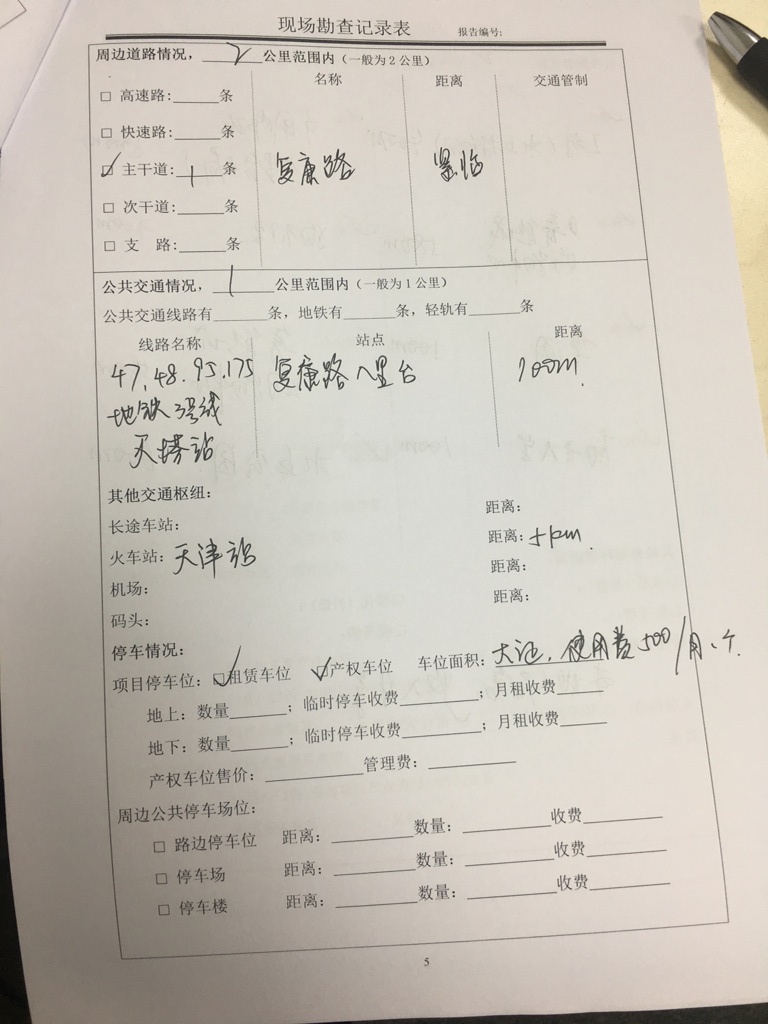 现场勘查记录表 报告编号:
周边道路情况，2公里范围内（一般为2公里）
名称 距离 交通管制
□ 高速路:_____条
□ 快速路:_____条
☑ 主干道:1条 复康路 紧临
□ 次干道:_____条
□ 支 路:_____条
公共交通情况，1公里范围内（一般为1公里）
公共交通线路有______条，地铁有______条，轻轨有______条
线路名称 站点 距离
47,48.95,175 复康路八里台 100m
地铁3号线
天塔站
其他交通枢纽:
长途车站: 距离:
火车站: 天津站 距离: 5km
机场: 距离:
码头: 距离:
停车情况:
项目停车位: ☑租赁车位 ☑产权车位 车位面积: 大证，使用费500/月、个.
地上: 数量______; 临时停车收费________; 月租收费______
地下: 数量______; 临时停车收费________; 月租收费______
产权车位售价: __________管理费: _________
周边公共停车场位:
□ 路边停车位 距离: ________数量: ________收费________
□ 停车场 距离: ________数量: ________收费________
□ 停车楼 距离: ________数量: ________收费________
5